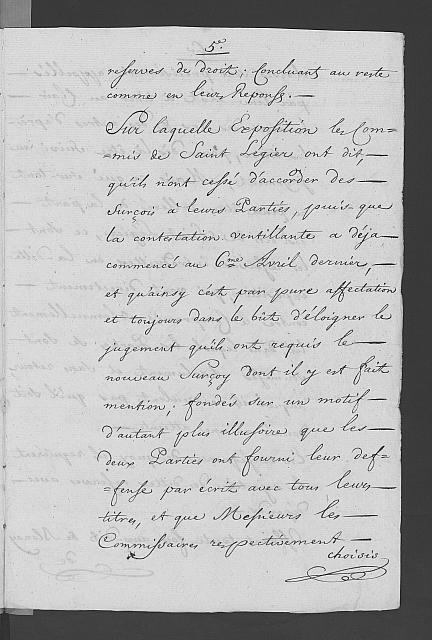 5.e
reserves de droit; Concluant au reste
comme en leur Reponse. —
Sur laquelle Exposition les Com=
=mis de Saint Légier ont dit, —
qu'ils nont cessé d'accorder des —
Surçois à leurs Parties, puis que
la contestation ventillante a déja —
commencé au 6.me Avril dernier, —
et qu'ainsy c'est par pure affectation
et toujours dans le bût d'éloigner le
jugement qu'ils ont requis le —
nouveau Surçoy dont il y est fait
mention; fondés sur un motif —
d'autant plus illusoire que les —
deux Parties ont fourni leur def=
=fense par écrit avec tous leurs —
titres, et que Messieurs les —
Commissaires respectivement —
choisis